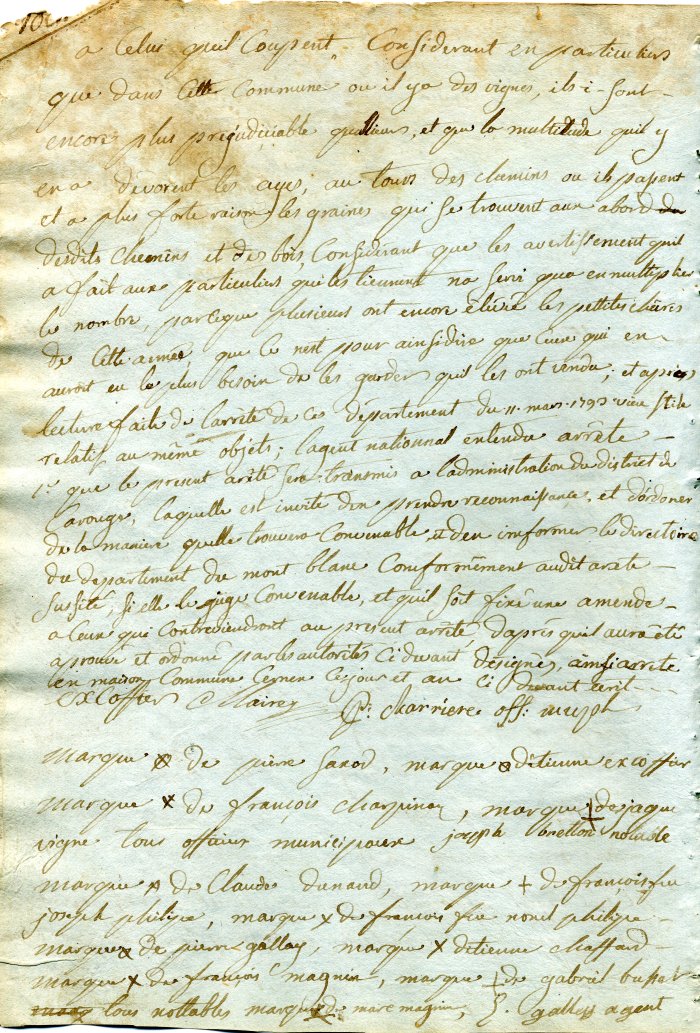 a Celui quil Coupent Considerant en particuliers
que dans Cette Commune ou il ya des vignes, ils i-sont
encore plus prejudiciable quallieurs, et que la multitude quil y
en a devorent les ayes, au tours des chemins ou ils passent
et a plus forte raison les graines qui se trouvent aux abord du
desdits chemins et des bois, Considérant que les avertissement quil
a fait aux particuliers qui les tiennent na servi qua en multiplier
le nombre, parceque plusieurs ont encore élévé les pettites chèvres
de Cette année, que Ce nest pour ainsidire que Ceux qui en
auroit eu le plus besoin de les garder qui les ont vendu; et après
lecture fait de larrêté de ces département du 11 mars 1793 vieux stile
relatif au même objets; lagent nationnal entendu arrête
1° que le present arêté sera transmis a ladministration du district de
Carouge, laquelle est invité den prendre reconnaissance, et dordoner
de la maniere quelle trouvera Convenable, et den imformer le directoire
du departement du mont blanc Conformêment audit arate
sussité, si elle le juge Convenable, et quil soit fixé une amende
a Ceux qui Contreviendront au present arrêté, daprés quil aura été
aprouvé et ordonné par les autorités Ci devant désignés, ainsi arrete
en maison Commune Ceynen Ces jour et an Ci devant écrit
Excoffier Maire charriere off. mupl
marque de pierre Savod, marque détienne excoffier
marque x de françois charpinay, marque de jaque
vigne tous officier municipaux joseph brellon notable
marque de Claude dunand, marque + de francois feu
joseph philipe, marque x de françois feu noncl philipe
marque de pierre gallay, marque x détienne chaffard
marque x de françois magnin, marque + de gabriel bussat
tous nottables marque de marc magnin, J. gallay agent